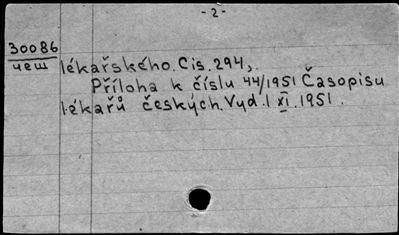 -2-
30086
чеш
lékařského. Čis. 294,.
Příloha k číslu 44/1951 Časopisu
lékařů českých. Vyd. 1 XI. 1951.